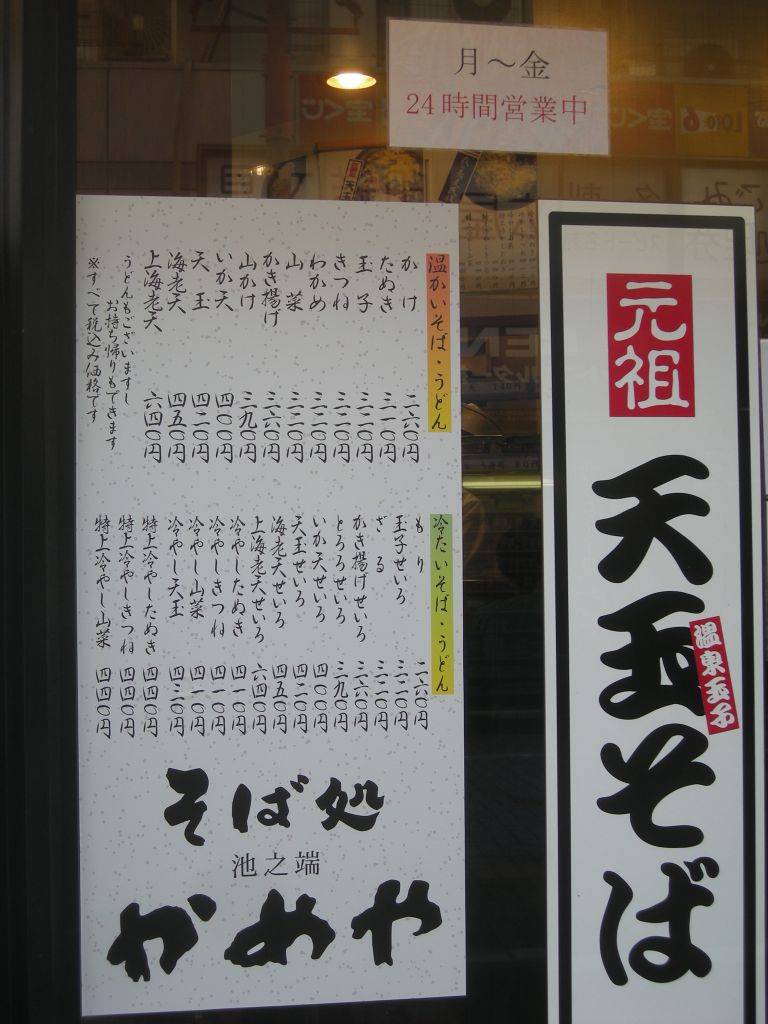 月～金
24時間営業中
温かいそば・うどん
かけ 二六〇円
たぬき 三一〇円
玉子 三二〇円
きつね 三二〇円
わかめ 三二〇円
山菜 三二〇円
かき揚げ 三六〇円
山かけ 三九〇円
いか天 四〇〇円
天玉 四二〇円
海老天 四五〇円
上海老天 六四〇円
うどんもございますし
お持ち帰りもできます
※すべて税込み価格です
冷たいそば・うどん
もり 二六〇円
玉子せいろ 三二〇円
ざる 三二〇円
かき揚げせいろ 三六〇円
とろろせいろ 三九〇円
いか天せいろ 四〇〇円
天玉せいろ 四二〇円
海老天せいろ 四五〇円
上海老天せいろ 六四〇円
冷やしたぬき 四一〇円
冷やしきつね 四一〇円
冷やし山菜 四一〇円
冷やし天玉 四三〇円
特上冷やしたぬき 四四〇円
特上冷やしきつね 四四〇円
特上冷やし山菜 四四〇円
そば処
池之端
かめや
元祖
天玉そば
温泉玉子